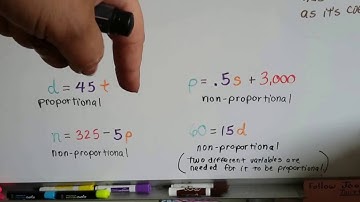 as it's
d = 45t
proportional
p = .5s + 3,000
non-proportional
n = 325 - 5p
non-proportional
60 = 15d
non-proportional
(Two different variables are
needed for it to be proportional)
Follow